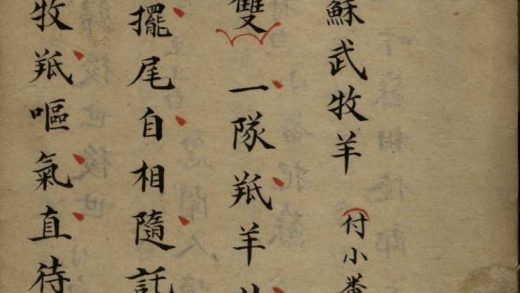 蘇武牧羊 付小番
雙一隊羝羊
擺尾自相隨託
牧羝嘔氣直待